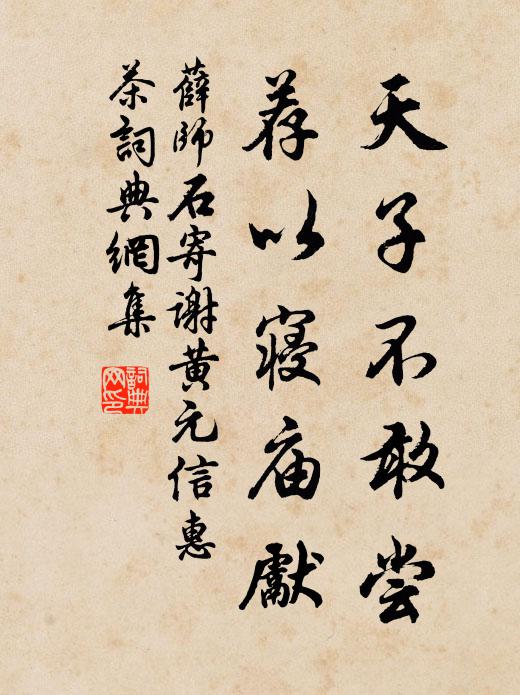 天子不敢尝
荐以寝庙獻
薛師石寄谢黄元信惠
茶詞典網集
詞典网印